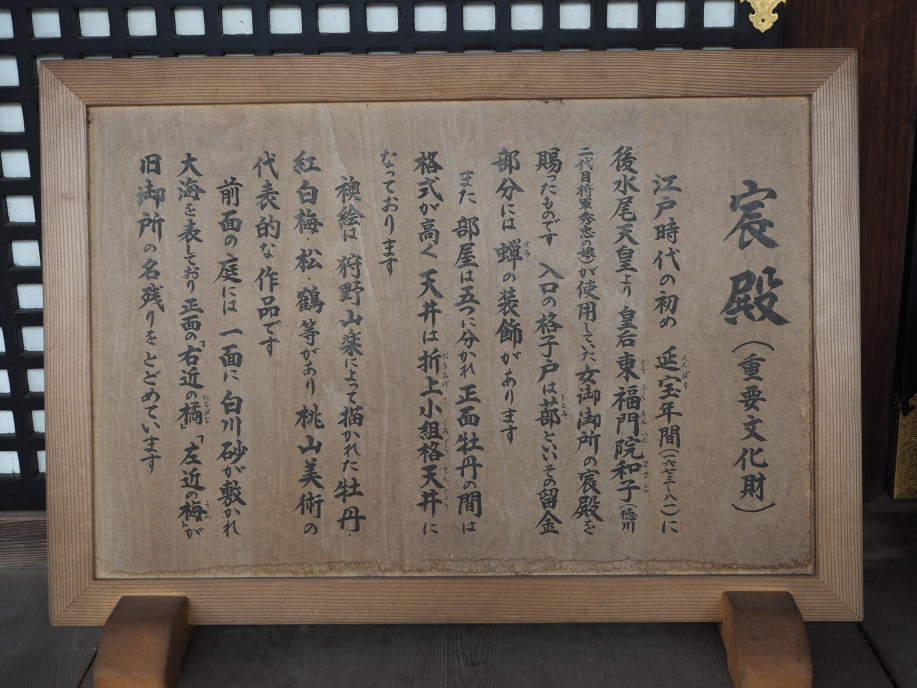 宸殿(重要文化財)
江戸時代の初め 延宝年間(一六七三〜八一)に
後水尾天皇より 皇后東福門院和子(徳川
二代目将軍秀忠の娘)が使用していた女御御所の宸殿を
賜ったものです 入口の格子戸は蔀といいその留金
部分には 蝉の装飾があります
また 部屋は五つに分かれ 正面牡丹の間は
格式が高く 天井は 折上小組格天井に
なっております
襖絵は 狩野山楽によって描かれた 牡丹・
紅白梅・松・鶴等があり 桃山美術の
代表的な作品です
前面の庭には 一面に 白川砂が敷かれ
大海を表しており 正面の「右近の橘」「左近の梅」が
旧御所の名残りをとどめています